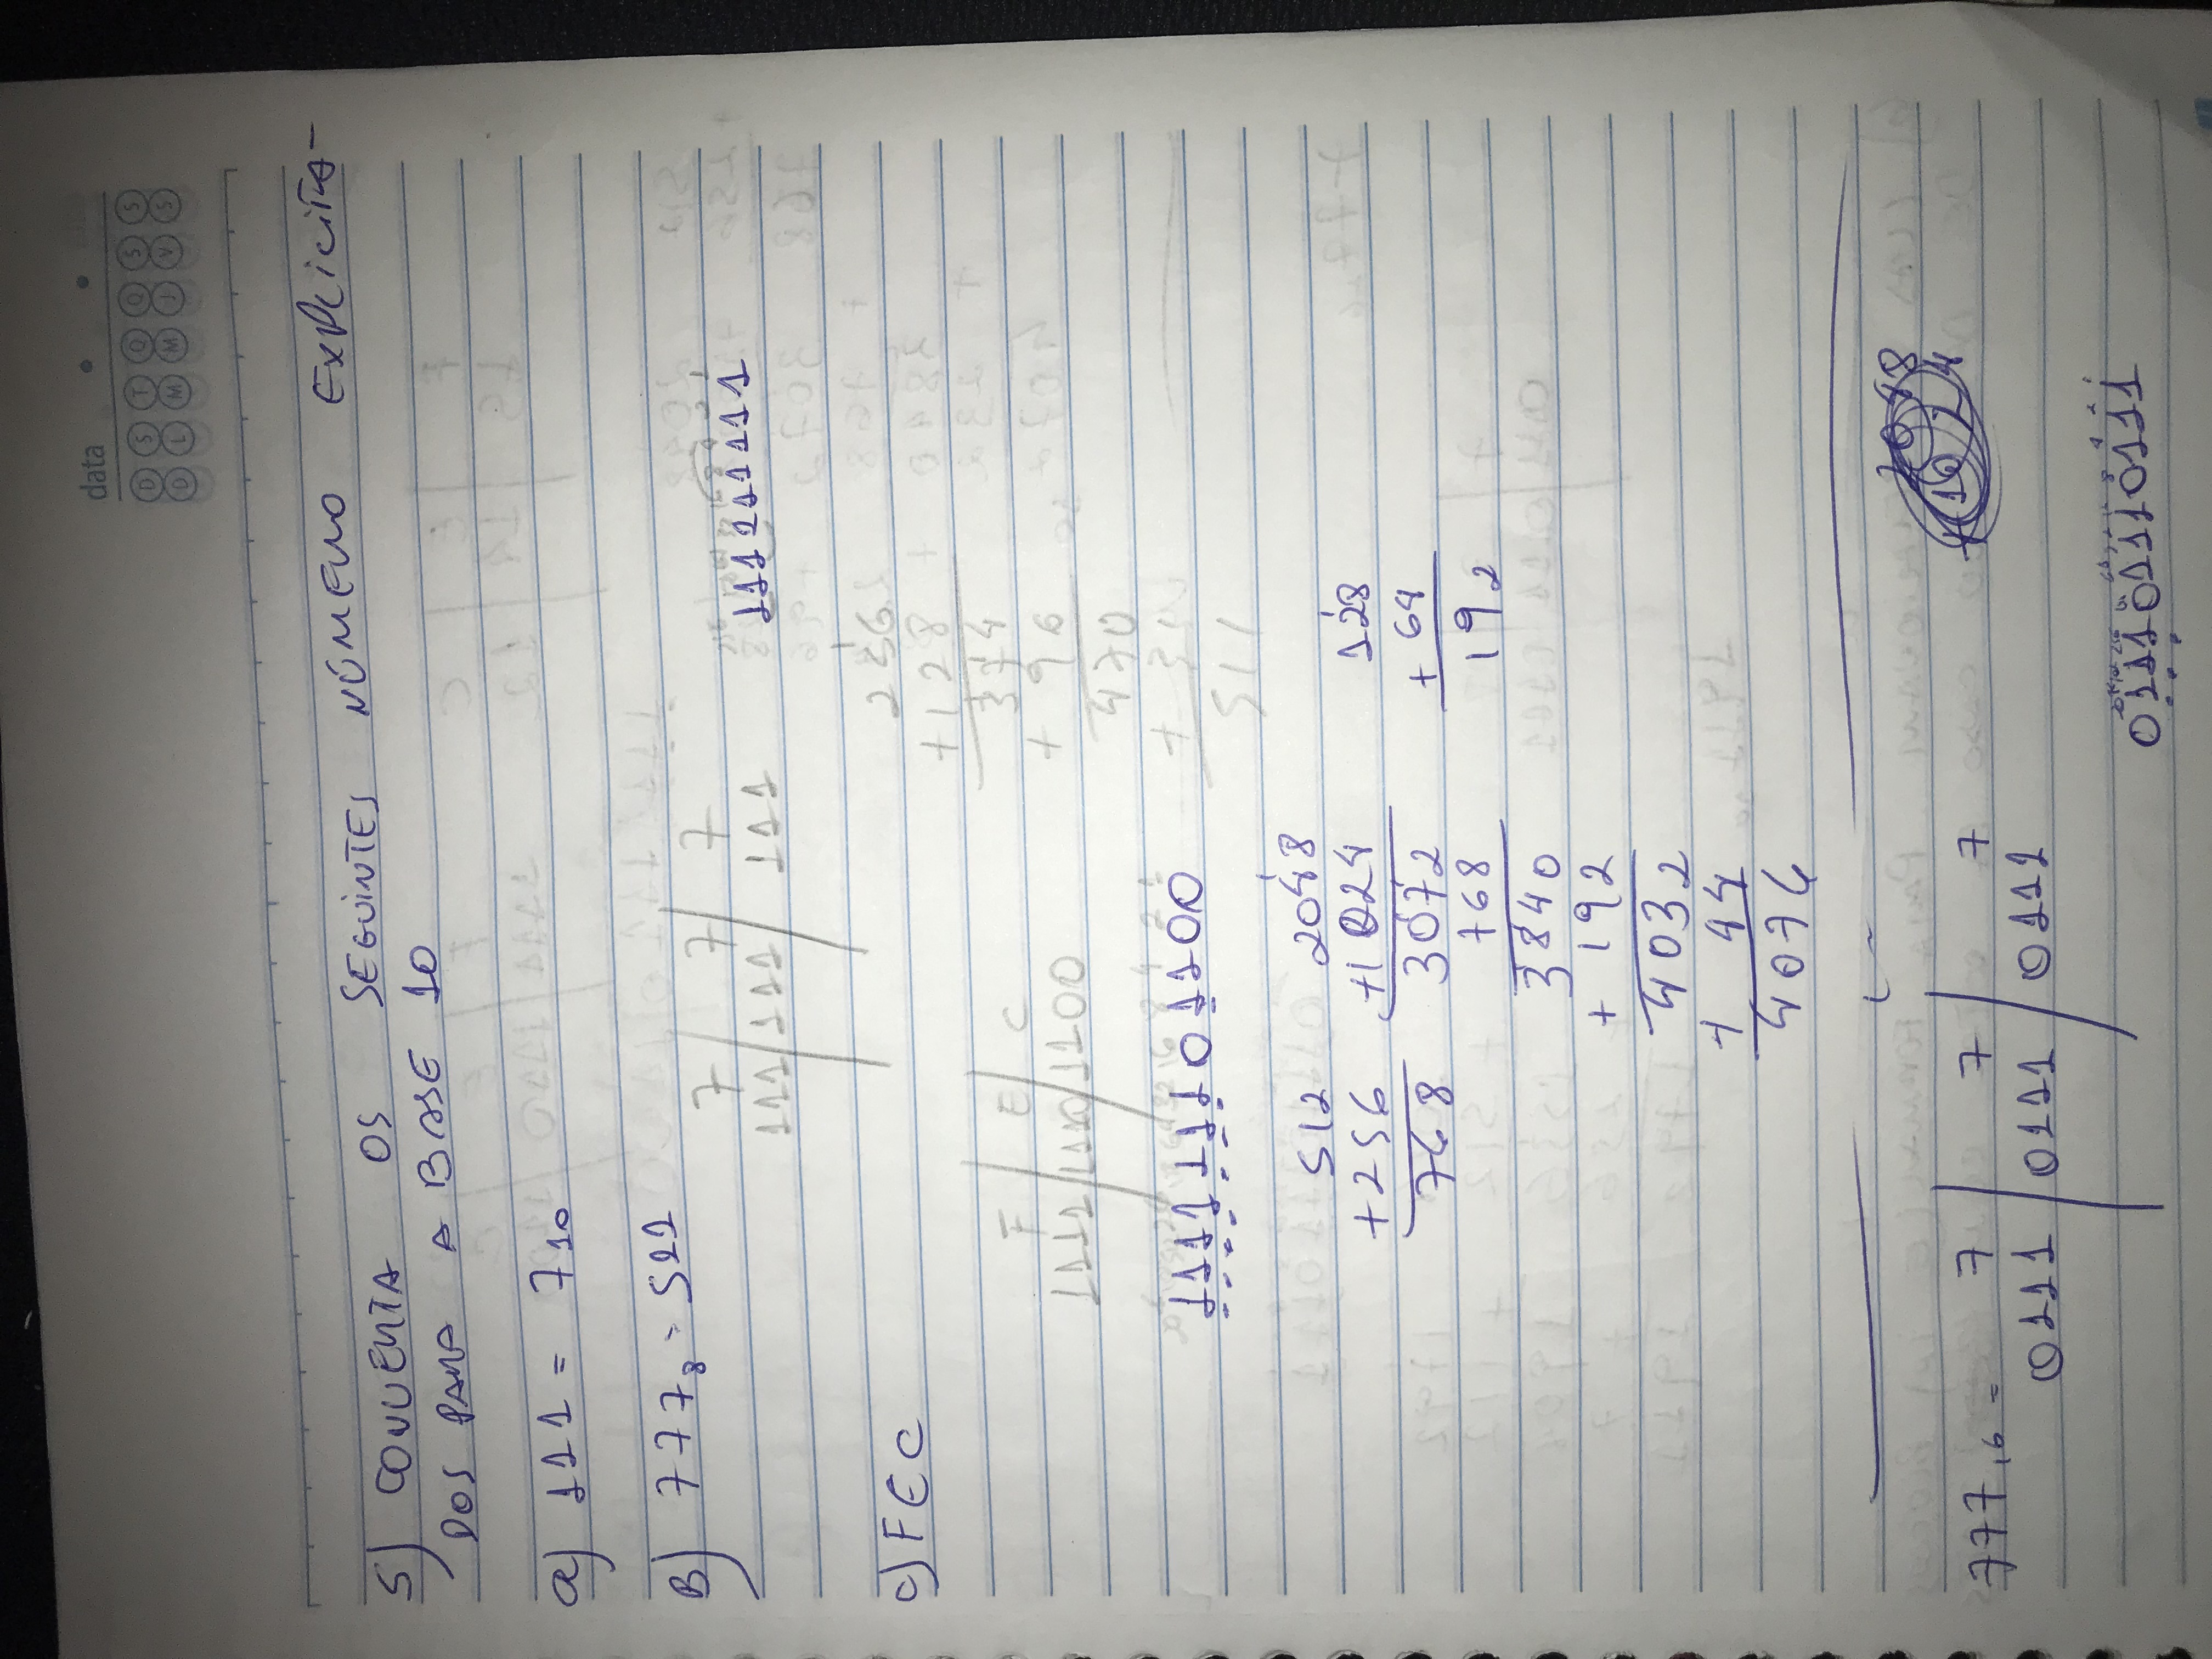 data
D S T Q Q S S
D L M M J V S
5) CONVERTA OS SEGUINTES NÚMERO EXPLICITA-
DOS PARA A BASE 10
a) 111 = 7 10
B) 777 8 = 511
7 7 7
111 111 111
111111111
256
+128
374
+ 96
470
+
511
c) FEC
F E C
1111 1110 1100
8 4 2 1
111111101100
512
+256
768
2048
+1024
3072
768
3840
+ 192
4032
+ 44
4076
128
+ 64
192
777 16 =
7 7 7
0111 0111 0111
4 2 1
011101110111